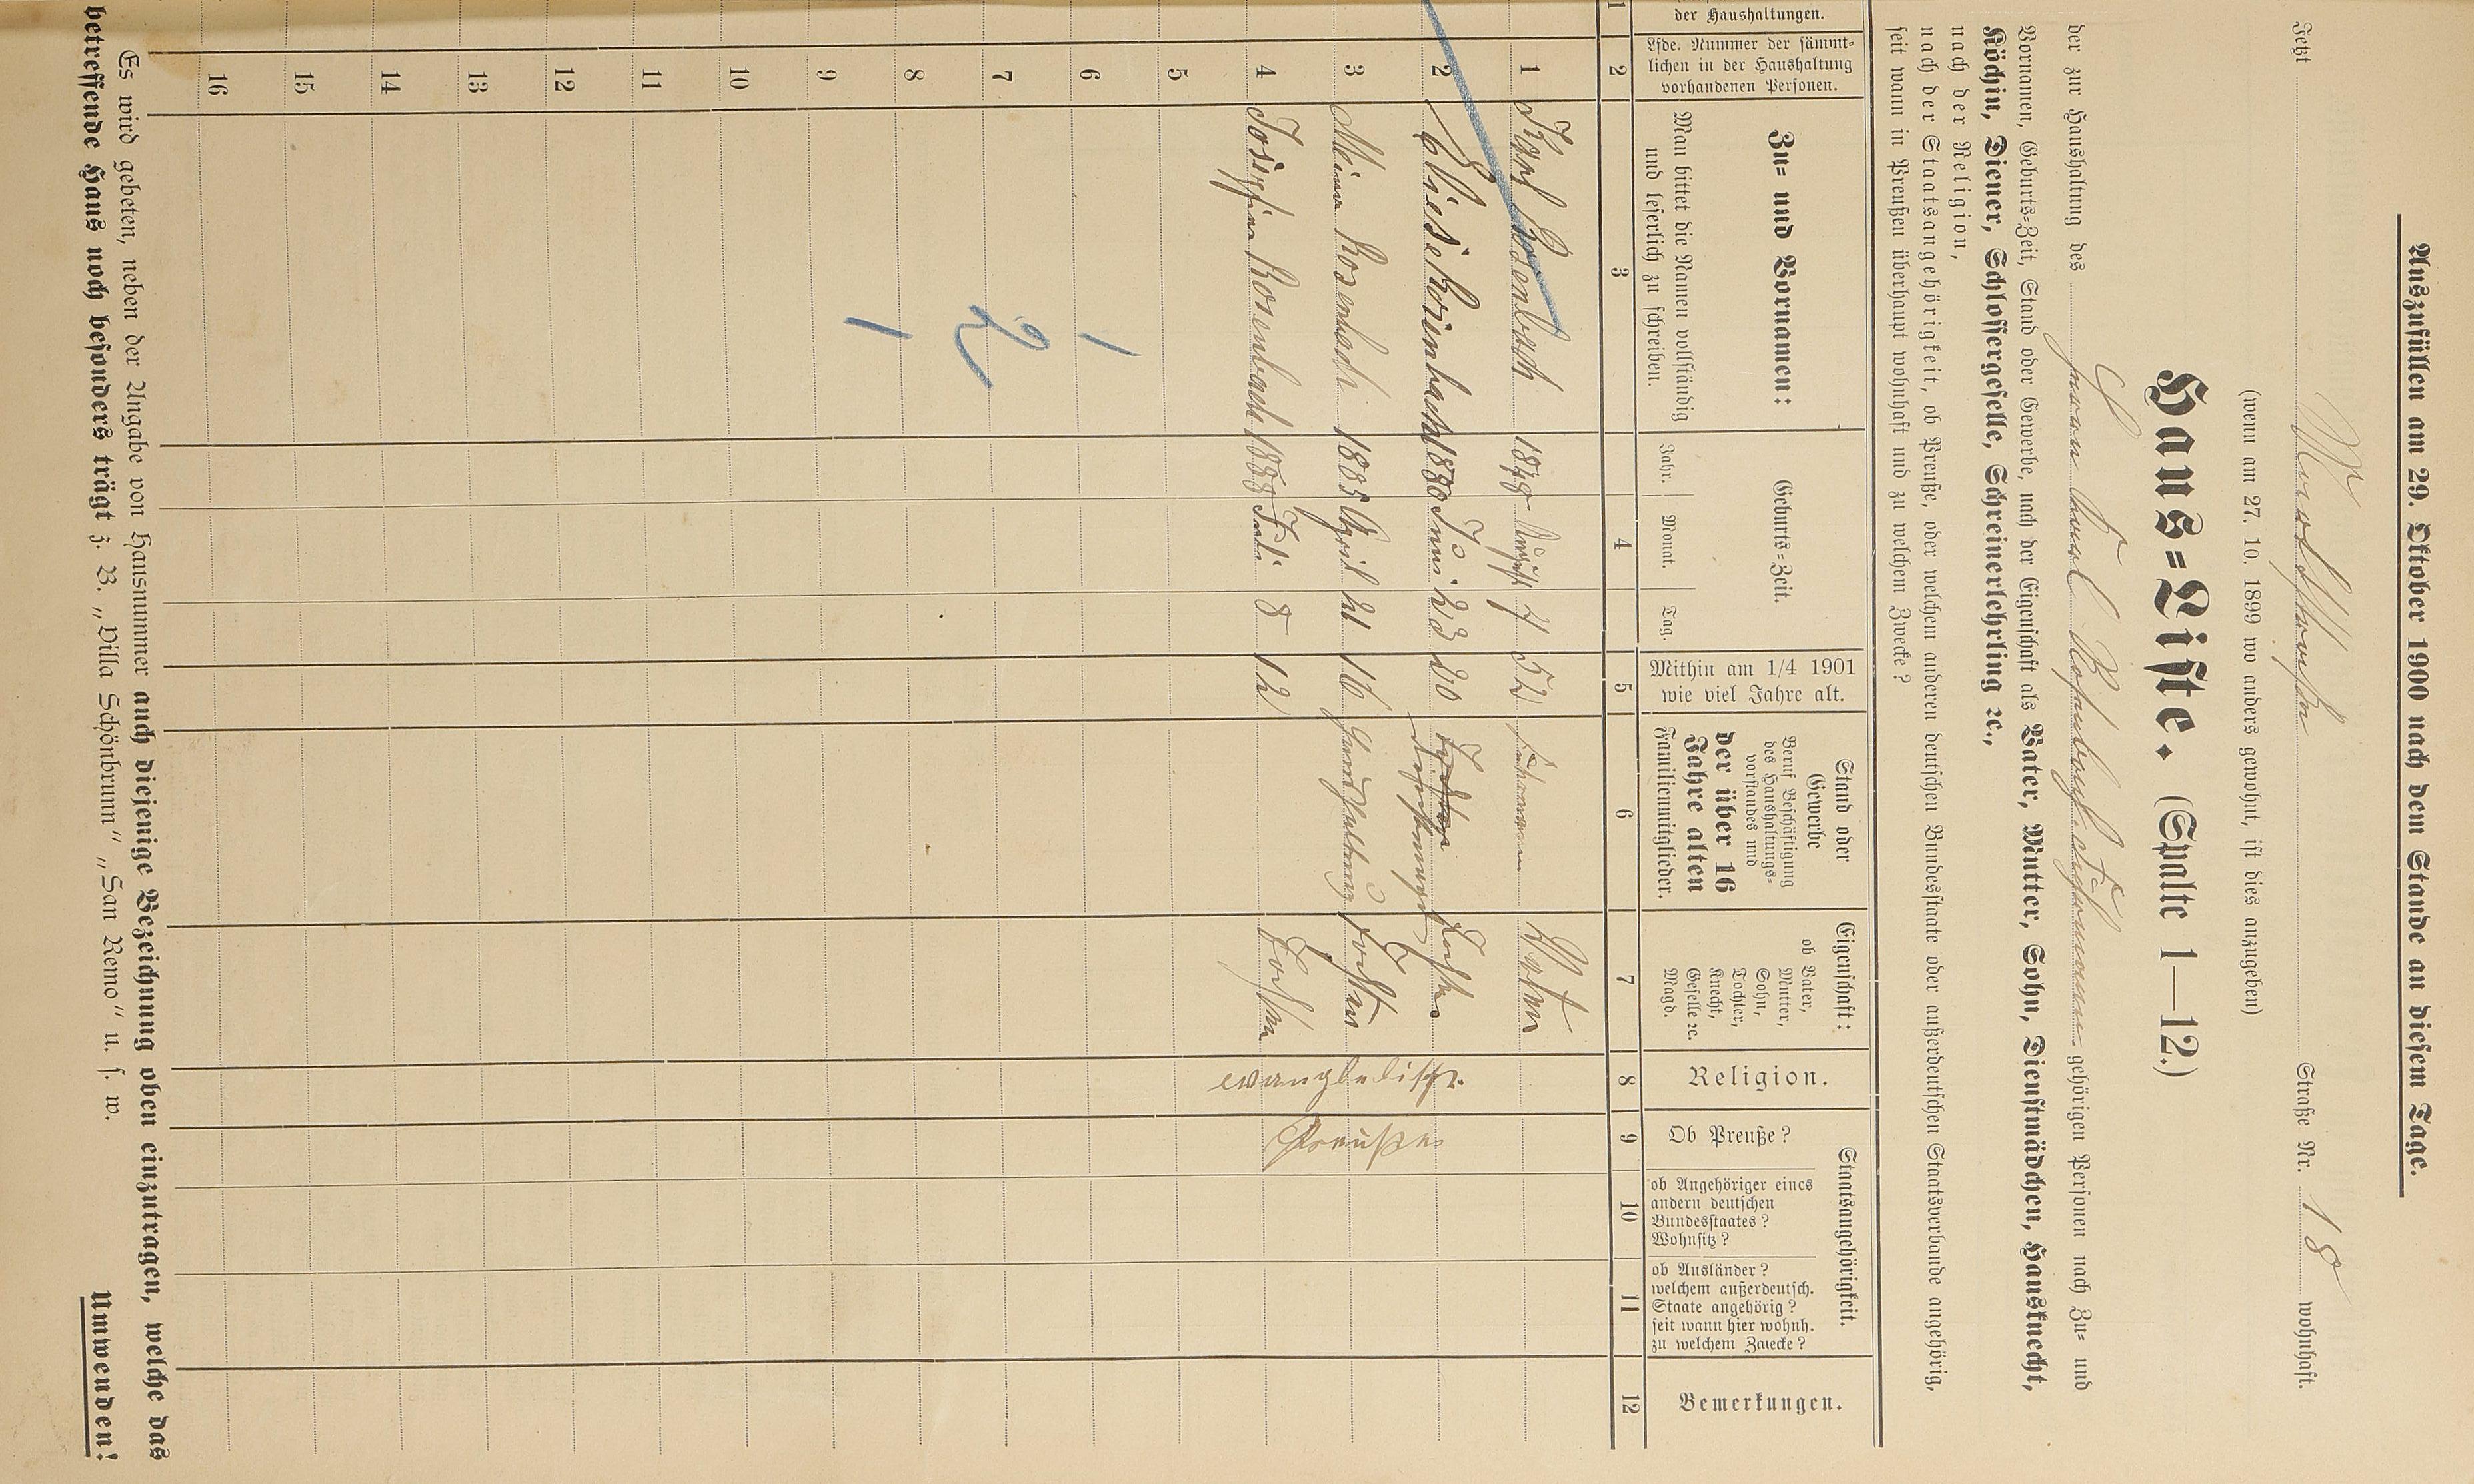 Auszufüllen am 29. Oktober 1900 nach dem Stande an diesem Tage.
Jetzt Straße Nr. 18 wohnhaft.
(wenn am 27. 10. 1899 wo anders gewohnt, ist dies anzugeben)
Haus=Liste. (Spalte 1—12.)
der zur Haushaltung des gehörigen Personen nach Zu= und
Vornamen, Geburts=Zeit, Stand oder Gewerbe, nach der Eigenschaft als Vater, Mutter, Sohn, Dienstmädchen, Hausknecht,
Köchin, Diener, Schlossergeselle, Schreinerlehrling ꝛc.,
nach der Religion,
nach der Staatsangehörigkeit, ob Preuße, oder welchem anderen deutschen Bundesstaate oder außerdeutschen Staatsverbande angehörig,
seit wann in Preußen überhaupt wohnhaft und zu welchem Zwecke?
der Haushaltungen.
Lfde. Nummer der sämmt=
lichen in der Haushaltung
vorhandenen Personen.
Zu= und Vornamen:
Man bittet die Namen vollständig
und leserlich zu schreiben.
Geburts=Zeit.
Jahr. Monat. Tag.
Mithin am 1/4 1901
wie viel Jahre alt.
Stand oder
Gewerbe
Beruf Beschäftigung
des Haushaltungs=
vorstandes und
der über 16
Jahre alten
Familienmitglieder.
Eigenschaft:
ob Vater,
Mutter,
Sohn,
Tochter,
Knecht,
Geselle ꝛc.
Magd.
Religion.
Staatsangehörigkeit.
Ob Preuße?
ob Angehöriger eines
andern deutschen
Bundesstaates?
Wohnsitz?
ob Ausländer?
welchem außerdeutsch.
Staate angehörig?
seit wann hier wohnh.
zu welchem Zwecke?
Bemerkungen.
1 2 3 4 5 6 7 8 9 10 11 12
1 Karl Rosenbach 1848 August 7 52 Fuhrmann Vater
2 Elise Rosenbach 1880 Juni 23 20 Tochter evangelisch Preuße
3 Mina Rosenbach 1885 April 21 16 Haushaltung Tochter
4 Josefine Rosenbach 1888 Juli 8 12 Tochter
5
6 1
7 2
8 1
9
10
11
12
13
14
15
16
Es wird gebeten, neben der Angabe von Hausnummer auch diejenige Bezeichnung oben einzutragen, welche das
betreffende Haus noch besonders trägt z. B. „Villa Schönbrunn“ „San Remo“ u. s. w.
Umwenden!